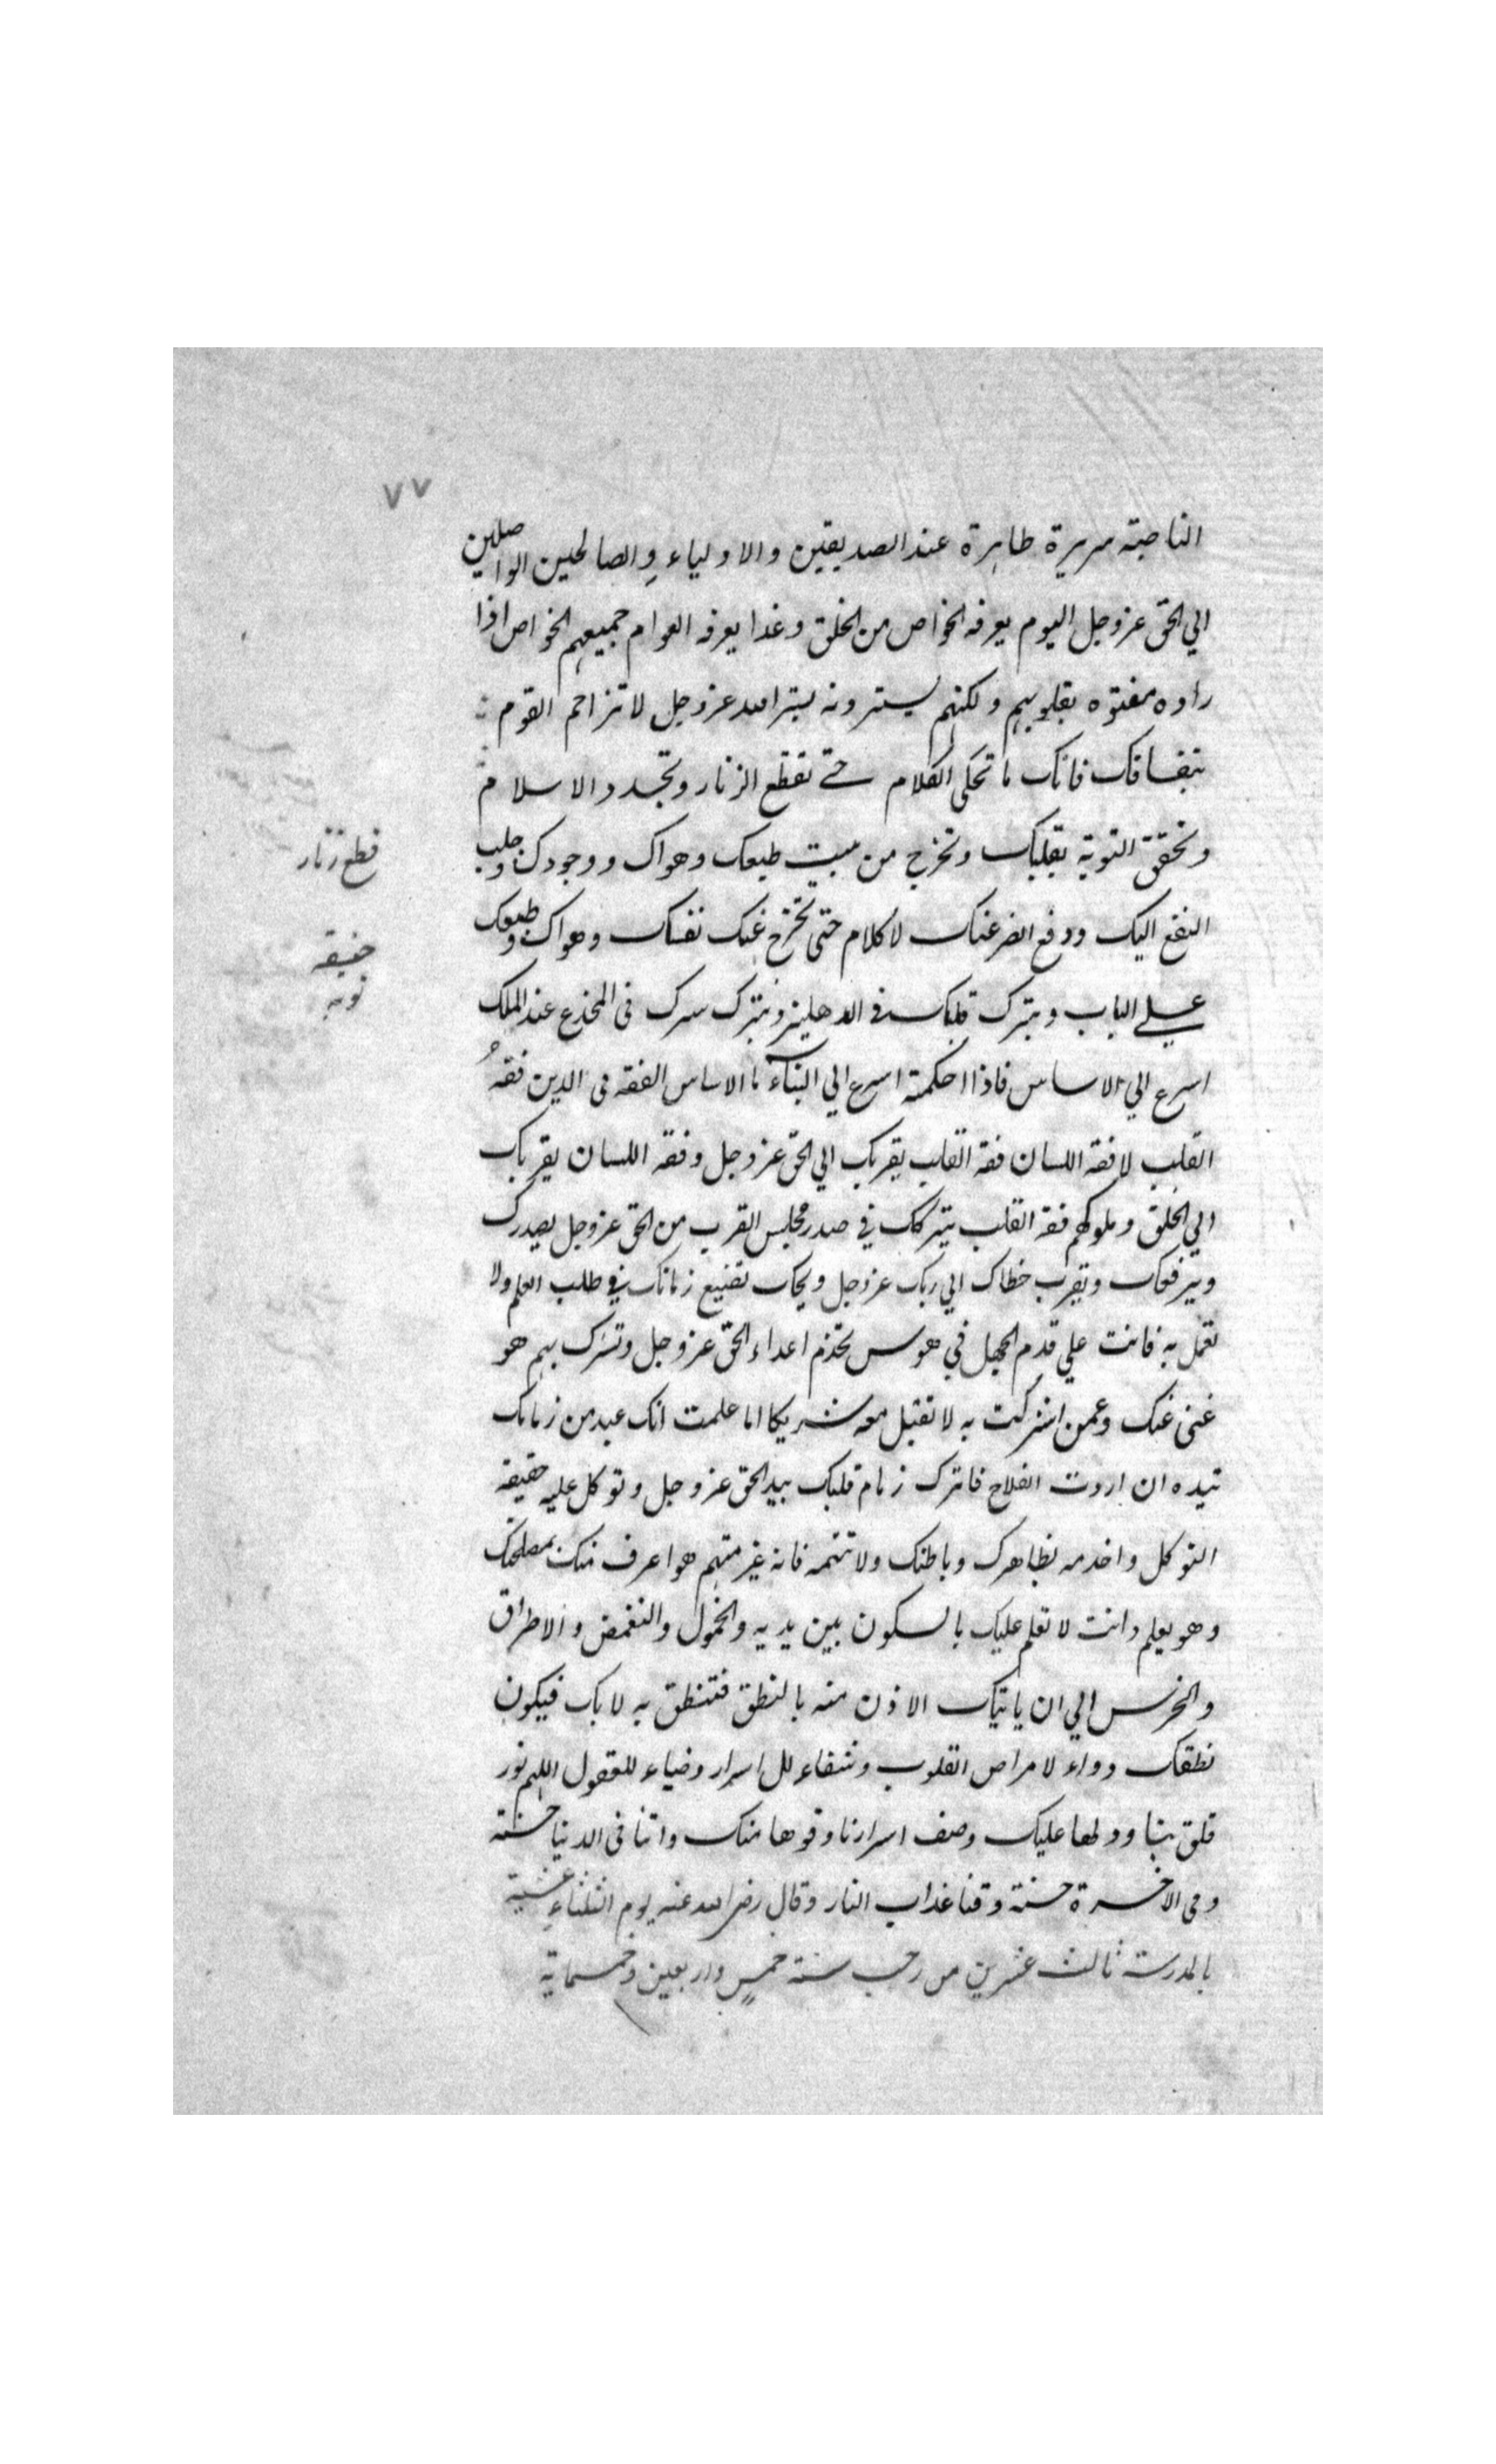 ٧٧
الناصبة سريرة ظاهرة عند الصديقين والاولياء والصالحين الواصلين
الي الحق عز وجل اليوم يعرفه الخواص من الخلق وغدا يعرفه العوام جميعهم الخواص اذا
راوه مقتوه بقلوبهم ولكنهم يسترونه بستر الله عز وجل لا تزاحم القوم
بنفاقك فانك ما تحكى الكلام حتى تقطع الزنار وتجدد الاسلام
وتحقق التوبة بقلبك وتخرج من بيت طبعك وهواك ووجودك وجلب
النفع اليك ودفع الضر عنك لا كلام حتى تخرج عنك نفسك وهواك وطبعك
على الباب وتترك قلبك في الدهليز وتترك سرك فى المخدع عند الملك
اسرع الي الاساس فاذا احكمته اسرع الي البناء ما الاساس الفقه فى الدين فقهُ
القلب لا فقه اللسان فقه القلب يقربك الي الحق عز وجل وفقه اللسان يقربك
الي الخلق وملوكهم فقه القلب يتركك في صدر مجلس القرب من الحق عز وجل يصدرك
ويرفعك ويقرب خطاك الي ربك عز وجل ويحك تضيع زمانك في طلب العلم ولا
تعمل به فانت علي قدم الجهل في هوس تخدم اعداء الحق عز وجل وتشرك بهم هو
غنى عنك وعمن اشركت به لا تقبل معه شريكا اما علمت انك عبد من زمامك
بيده ان اردت الفلاح فاترك زمام قلبك بيد الحق عز وجل وتوكل عليه حقيقة
التوكل واخدمه بظاهرك وباطنك ولا تتهمه فانه غير متهم هو اعرف منك بمصلحتك
وهو يعلم وانت لا تعلم عليك بالسكون بين يديه والخمول والتغمض والاطراق
والخرس الي ان ياتيك الاذن منه بالنطق فتنطق به لا بك فيكون
نطقك دواء لامراض القلوب وشفاء للاسرار وضياء للعقول اللهم نور
قلوبنا ودلها عليك وصف اسرارنا وقربها منك واتنا فى الدنيا حسنة
وفى الاخرة حسنة وقنا عذاب النار وقال رضى الله عنه يوم الثلثاء عشية
بالمدرسة ثالث عشرين من رجب سنة خمس واربعين وخمسماية
قطع زنار
حقيقة
توبه